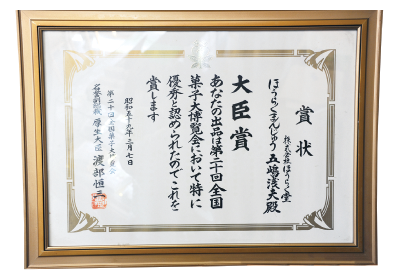 賞状
株式会社ほうらく堂
ほうらくまんじゅう 五嶋浅夫殿
大臣賞
あなたの出品は第二十回全国
菓子大博覧会において特に
優秀と認められたのでこれを
賞します
昭和五十九年二月七日
第二十回全国菓子大博覧会
名誉総裁 厚生大臣 渡部恒三